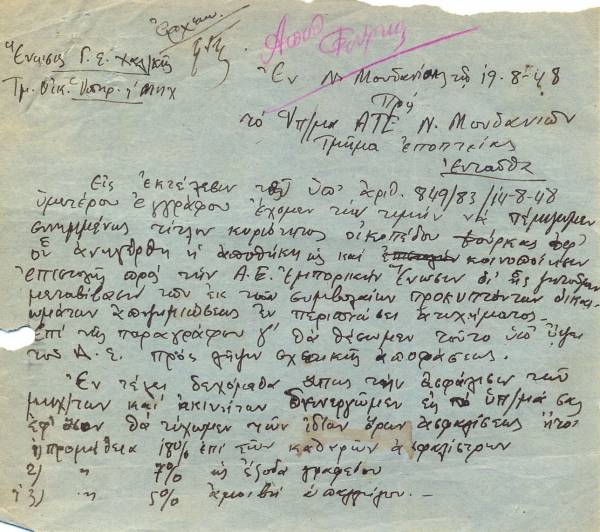 Ἔνωσις Γ. Σ. Χαλ/κῆς
Τμ. Οἰκ. Ὑπηρ.
Φούρκας
Ἐν Ν. Μουδανίοις τῇ 19-8-48
Πρὸς
τὸ Ὑπ/μα ΑΤΕ Ν. Μουδανιῶν
Τμῆμα ἐποπτείας
Ἐνταῦθα
Εἰς ἐκτέλεσιν τοῦ ὑπ' ἀριθ. 849/83/14-8-48
ὑμετέρου ἐγγράφου ἔχομεν τὴν τιμὴν νὰ πέμψωμεν
συνημμένως τίτλον κυριότητος οἰκοπέδου Φούρκας ἐφ'
οὗ ἀνηγέρθη ἡ ἀποθήκη ὡς καὶ κοινοποίησιν
ἐπιστολῆς πρὸς τὴν Α.Ε. Ἐμπορικὴν Ἕνωσιν δι' ἧς
μεταβίβασιν τῶν ἐκ τοῦ συμβολαίου προκυπτόντων δικαι-
ωμάτων ἀποζημιώσεως ἐν περιπτώσει ἀτυχήματος.
Ἐπὶ τῆς παραγράφου γ' θὰ θέσωμεν τοῦτο ὑπ' ὄψει
τοῦ Δ.Σ. πρὸς λῆψιν σχετικῆς ἀποφάσεως.
Ἐν τέλει δεχόμεθα ὅπως τὴν ἀσφάλισιν τῶν
μηχ/των καὶ ἀκινήτων διενεργῶμεν εἰς τὸ ὑπ/μά σας
ἐφ' ὅσον θὰ τύχωμεν τῶν ἰδίων ὅρων ἀσφαλίσεως ἤτοι
1) προμήθεια 18% ἐπὶ τῶν καθαρῶν ἀσφαλίστρων
2) " 7% ὡς ἔξοδα γραφείου
3) " 5% ἀμοιβὴ ὑπαλλήλου.-